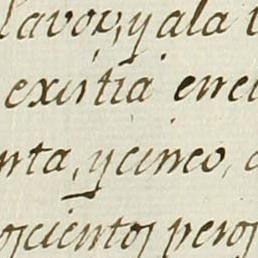 lavor, y ala
existia en el
nta, y cinco,
oscientos pesos